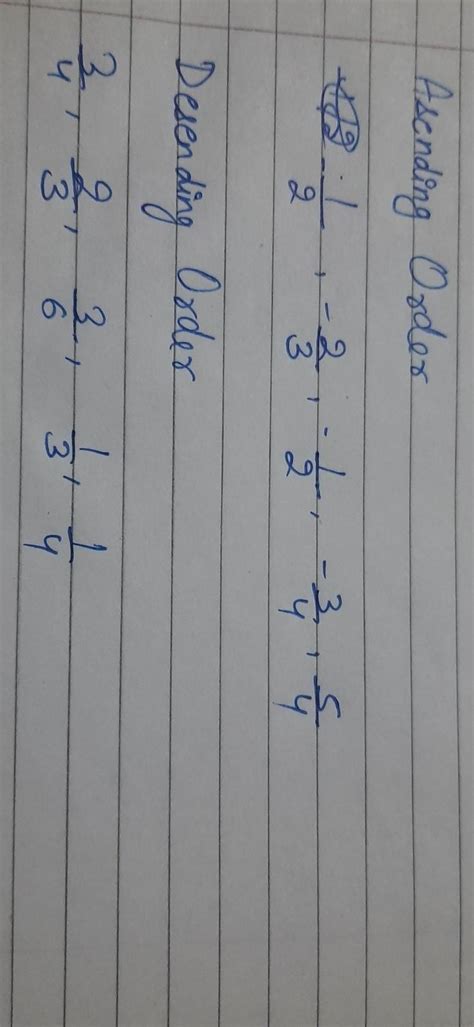 Asending Order
1/2, -2/3, -1/2, -3/4, 5/4
Desending Order
3/4, 2/3, 3/6, 1/3, 1/4